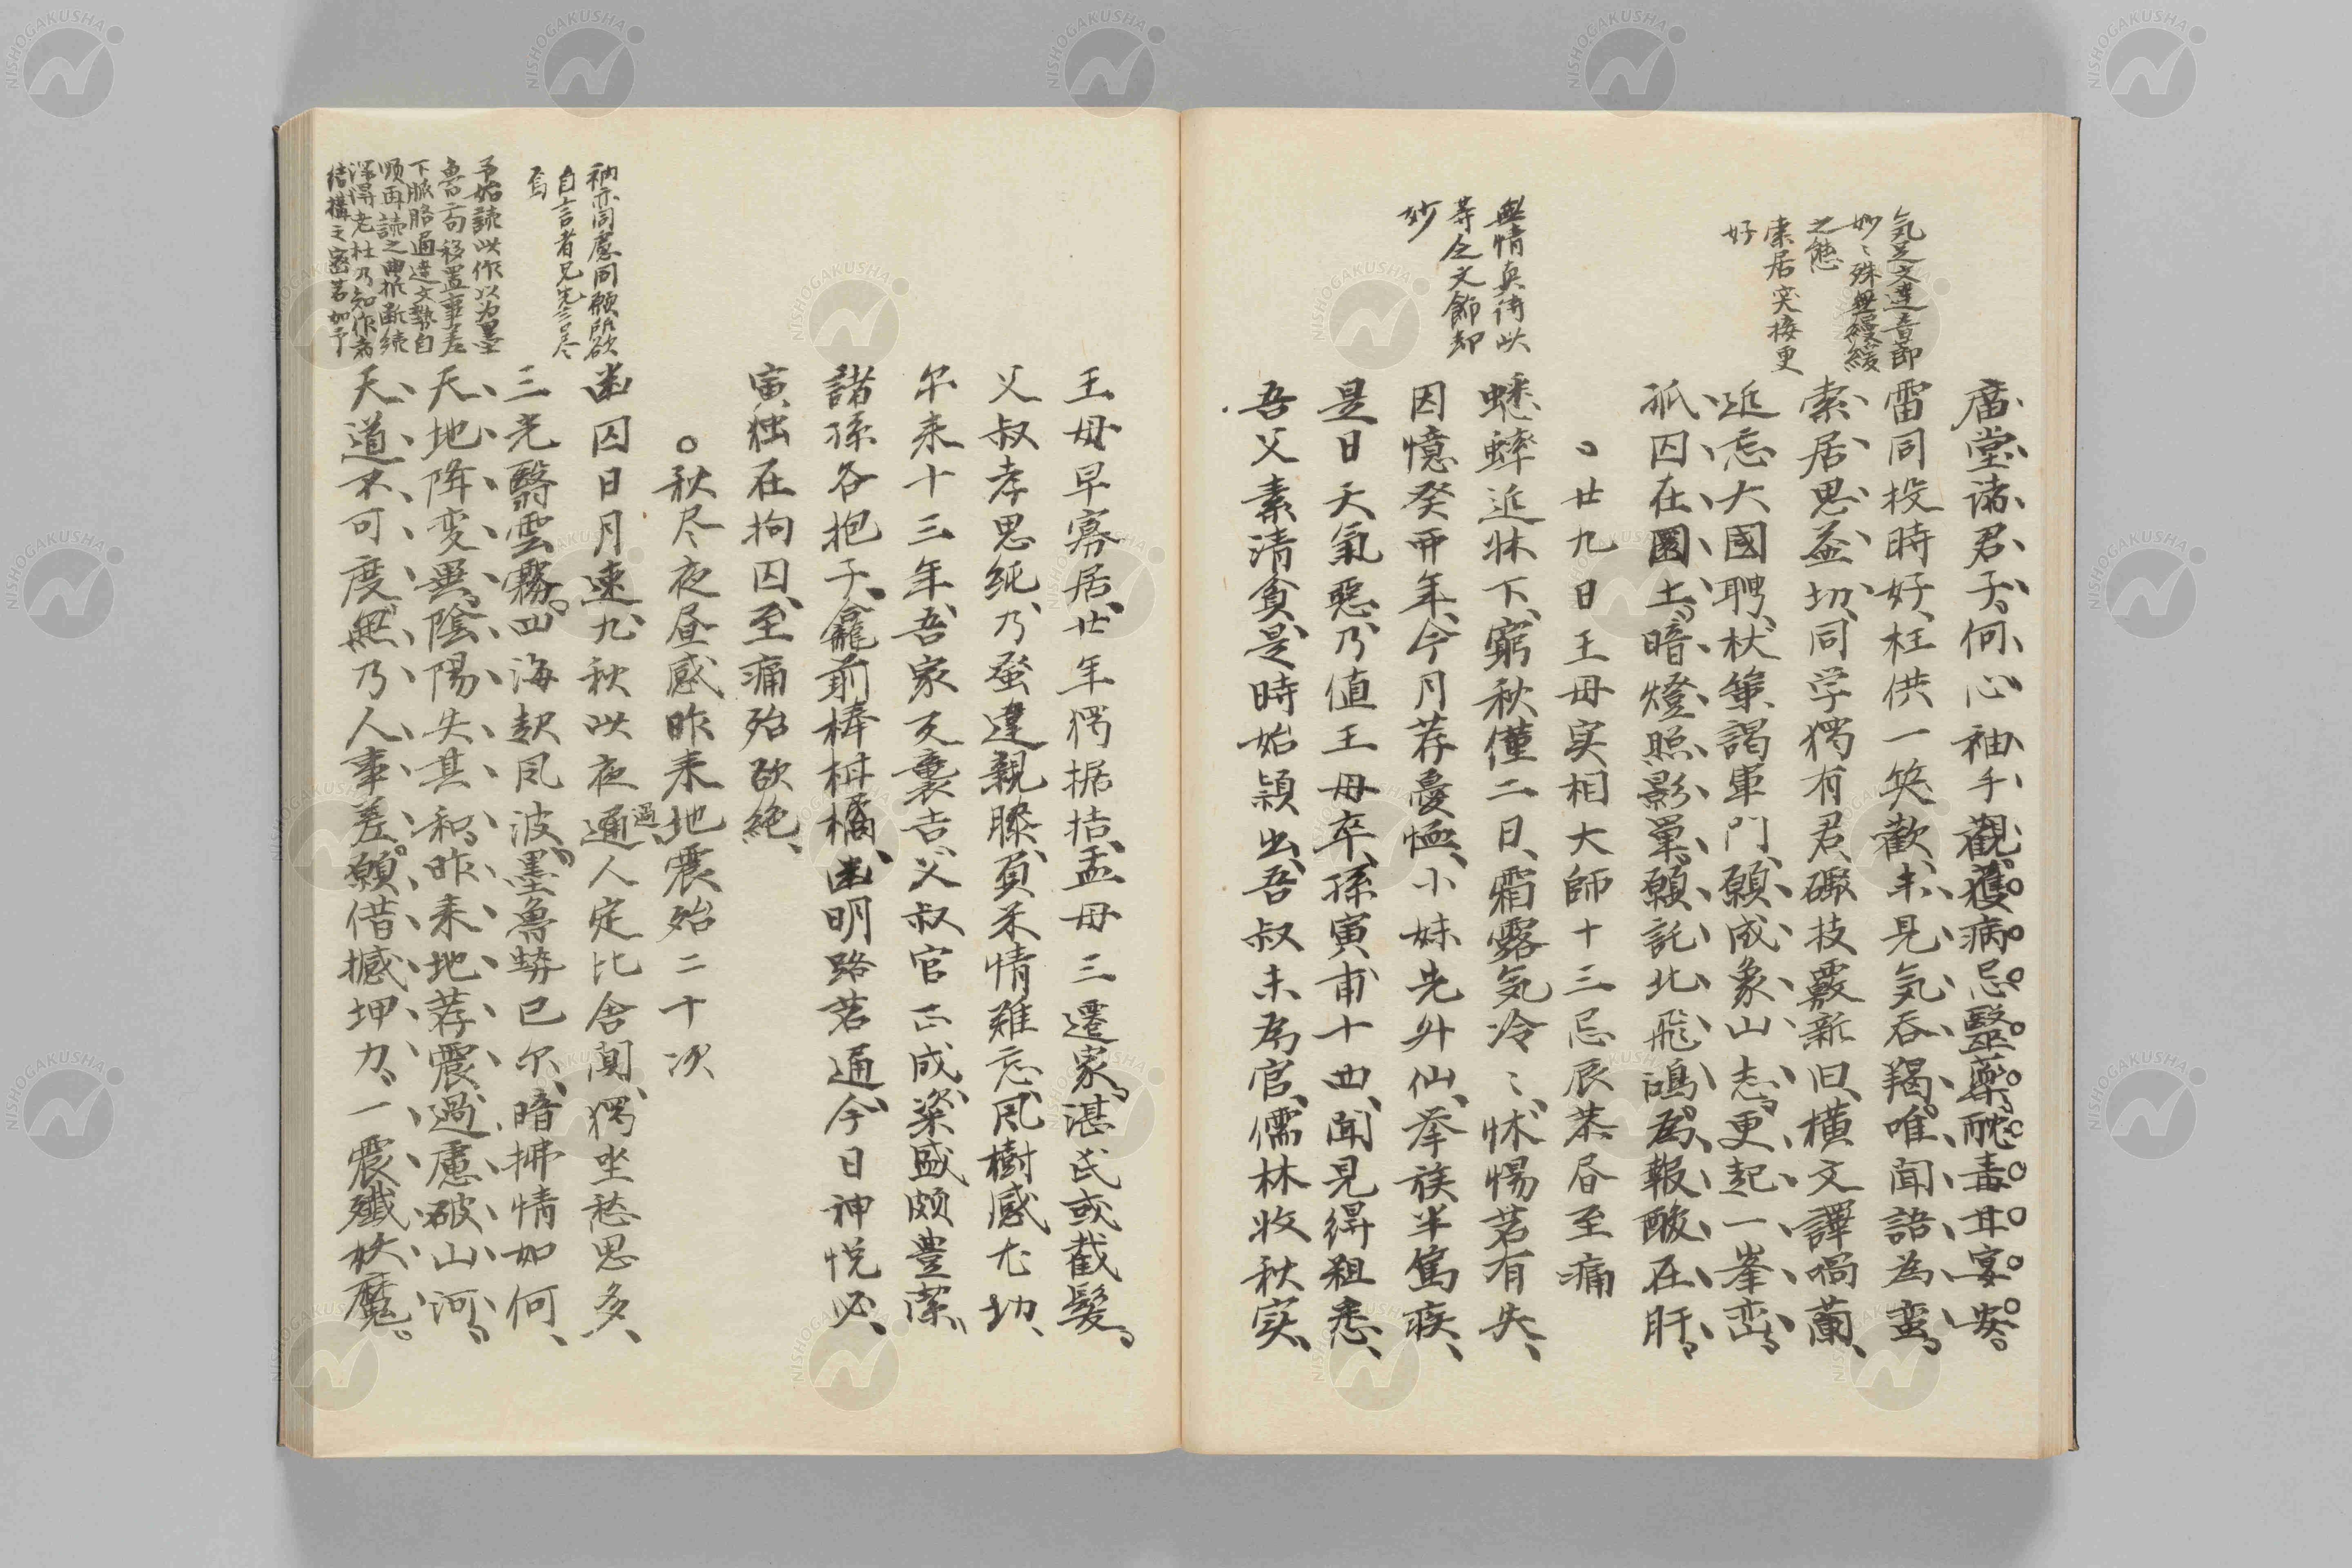 気足文達音節
妙〻殊無緩緩
之態
索居突接更
好
廟堂諸君子、何心袖手観、獲病忌醫藥、酖毒甘宴安。
雷同投時好、枉供一笑歡、未見気吞羯、唯聞語為蛮。
索居思益切、同学獨有君、磔技覈新旧、横文譯喎蘭、
近忘大國聘、杖策謁軍門、願成象山志、更起一峯巒。
孤囚在圜土、暗燈照影単、願託北飛鴻、為報酸在肝。
無情真待此
等之文飾却
妙
○廿九日王母実相大師十三忌辰茶昏至痛
蟋蟀近牀下、窮秋僅二日、霜露気冷〻、怵惕若有失、
因憶癸丑年、今月荐憂恤、小妹先升仙、挙族半篤疾、
是日天氣惡、乃値王母卒、孫寅甫十四、聞見得粗悉、
吾父素清貧、是時始頴出、吾叔未為官、儒林收秋実、
王母早寡居、廿年獨据拮、孟母三遷家、湛氏或截髮。
父叔孝思純、乃蛩違親膝、負米情難忘、風樹感尤切、
尓来十三年、吾家又襄吉、父叔官正成、粢盛頗豊潔、
諸孫各抱子、龕前棒柑橘、幽明路若通、今日神悦必、
寅独在拘囚、至痛殆欲絶、
○秋尽夜昼感昨来地震殆二十次
衲亦同慮同願所欲
自言者兄先言尽
焉
幽囚日月速、九秋此夜過、通人定比舎闃、獨坐愁思多、
三光翳雲霧、四海起風波、墨魯蜂已尓、暗拂情如何、
予始読此作以為墨
魯二句移置事差
下脈胳通達文勢自
順再読之典拠断続
深得老杜乃知作者
結構之密若如予
天地降変異、陰陽失其和、昨来地荐震、過慮破山河。
天道不可度、無乃人事差。願借撼坤力、一震殲妖魔。